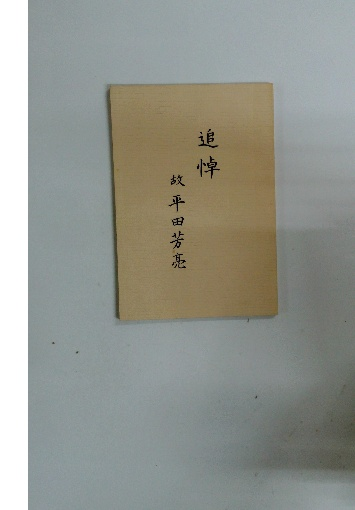 追悼
故平田芳亮